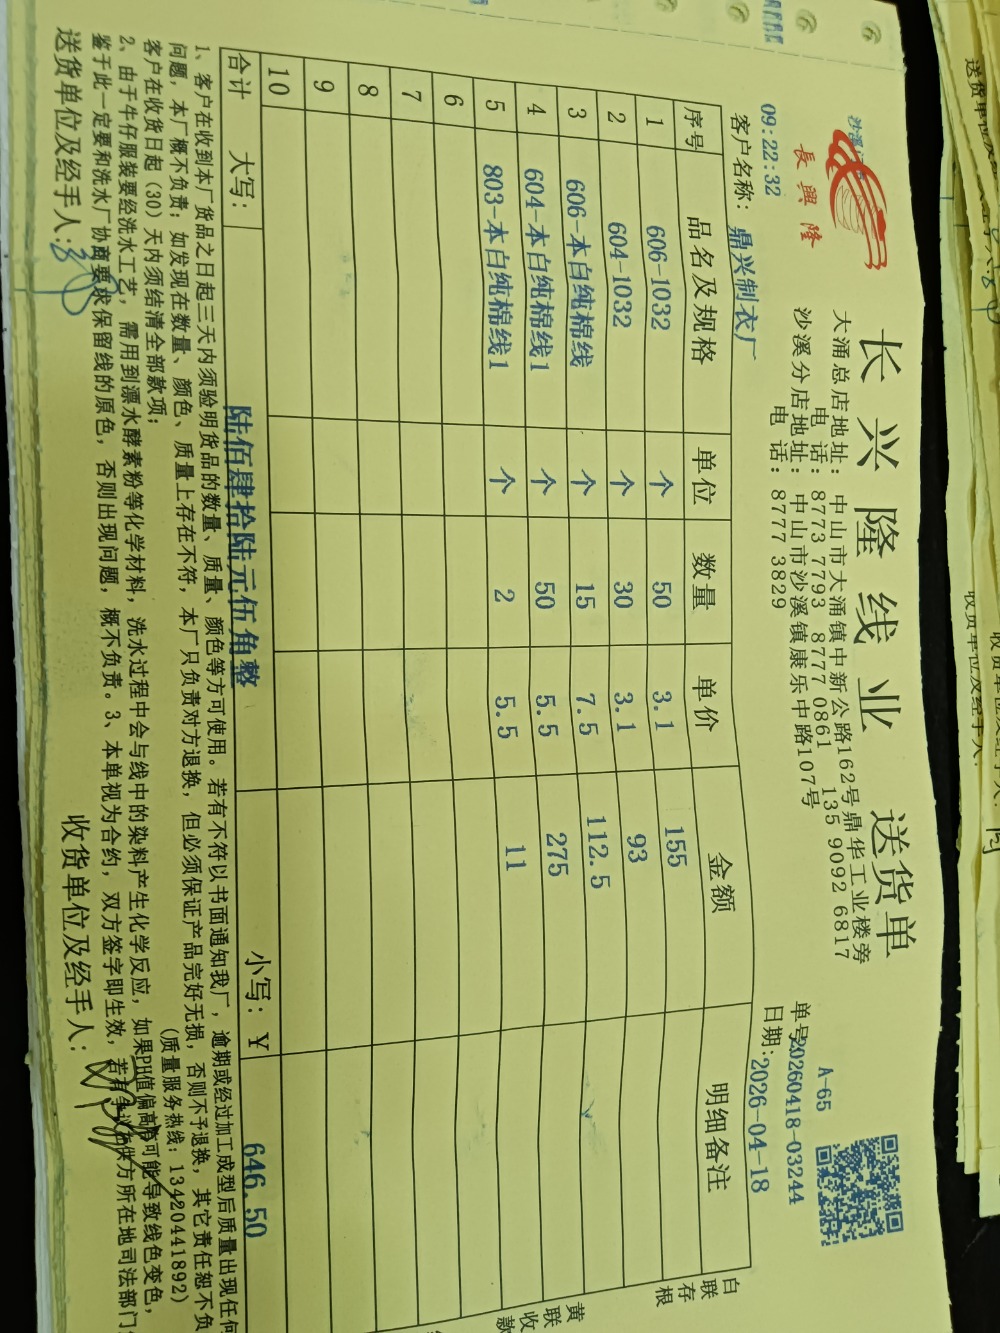 长兴隆线业 送货单
長興隆
大涌总店地址：中山市大涌镇中新公路162号鼎华工业楼旁
电 话：8773 7793 8777 0861 135 9092 6817
沙溪分店地址：中山市沙溪镇康乐中路107号
电 话：8777 3829
A-65
单号：20260418-03244
09:22:32
日期：2026-04-18
客户名称：鼎兴制衣厂
序号 品名及规格 单位 数量 单价 金额 明细备注
1 606-1032 个 50 3.1 155
2 604-1032 个 30 3.1 93
3 606-本白纯棉线 个 15 7.5 112.5
4 604-本白纯棉线1 个 50 5.5 275
5 803-本白纯棉线1 个 2 5.5 11
6
7
8
9
10
合计 大写：陆佰肆拾陆元伍角整 小写：￥ 646.50
1、客户在收到本厂货品之日起三天内须验明货品的数量、质量、颜色等方可使用。若有不符以书面通知我厂，逾期或经过加工成型后质量出现任何
问题，本厂概不负责；如发现在数量、颜色、质量上存在不符，本厂只负责对方退换，但必须保证产品完好无损，否则不予退换，其它责任恕不负
客户在收货日起（30）天内须结清全部款项；
（质量服务热线：13420441892）
2、由于牛仔服装要经洗水工艺，需用到漂水酵素粉等化学材料，洗水过程中会与线中的染料产生化学反应，如果PH值偏高可能导致线色变色，
鉴于此一定要和洗水厂协商要求保留线的原色，否则出现问题，概不负责。3、本单视为合约，双方签字即生效，若有争议在供方所在地司法部门
送货单位及经手人：
收货单位及经手人：
白联存根
黄联收款